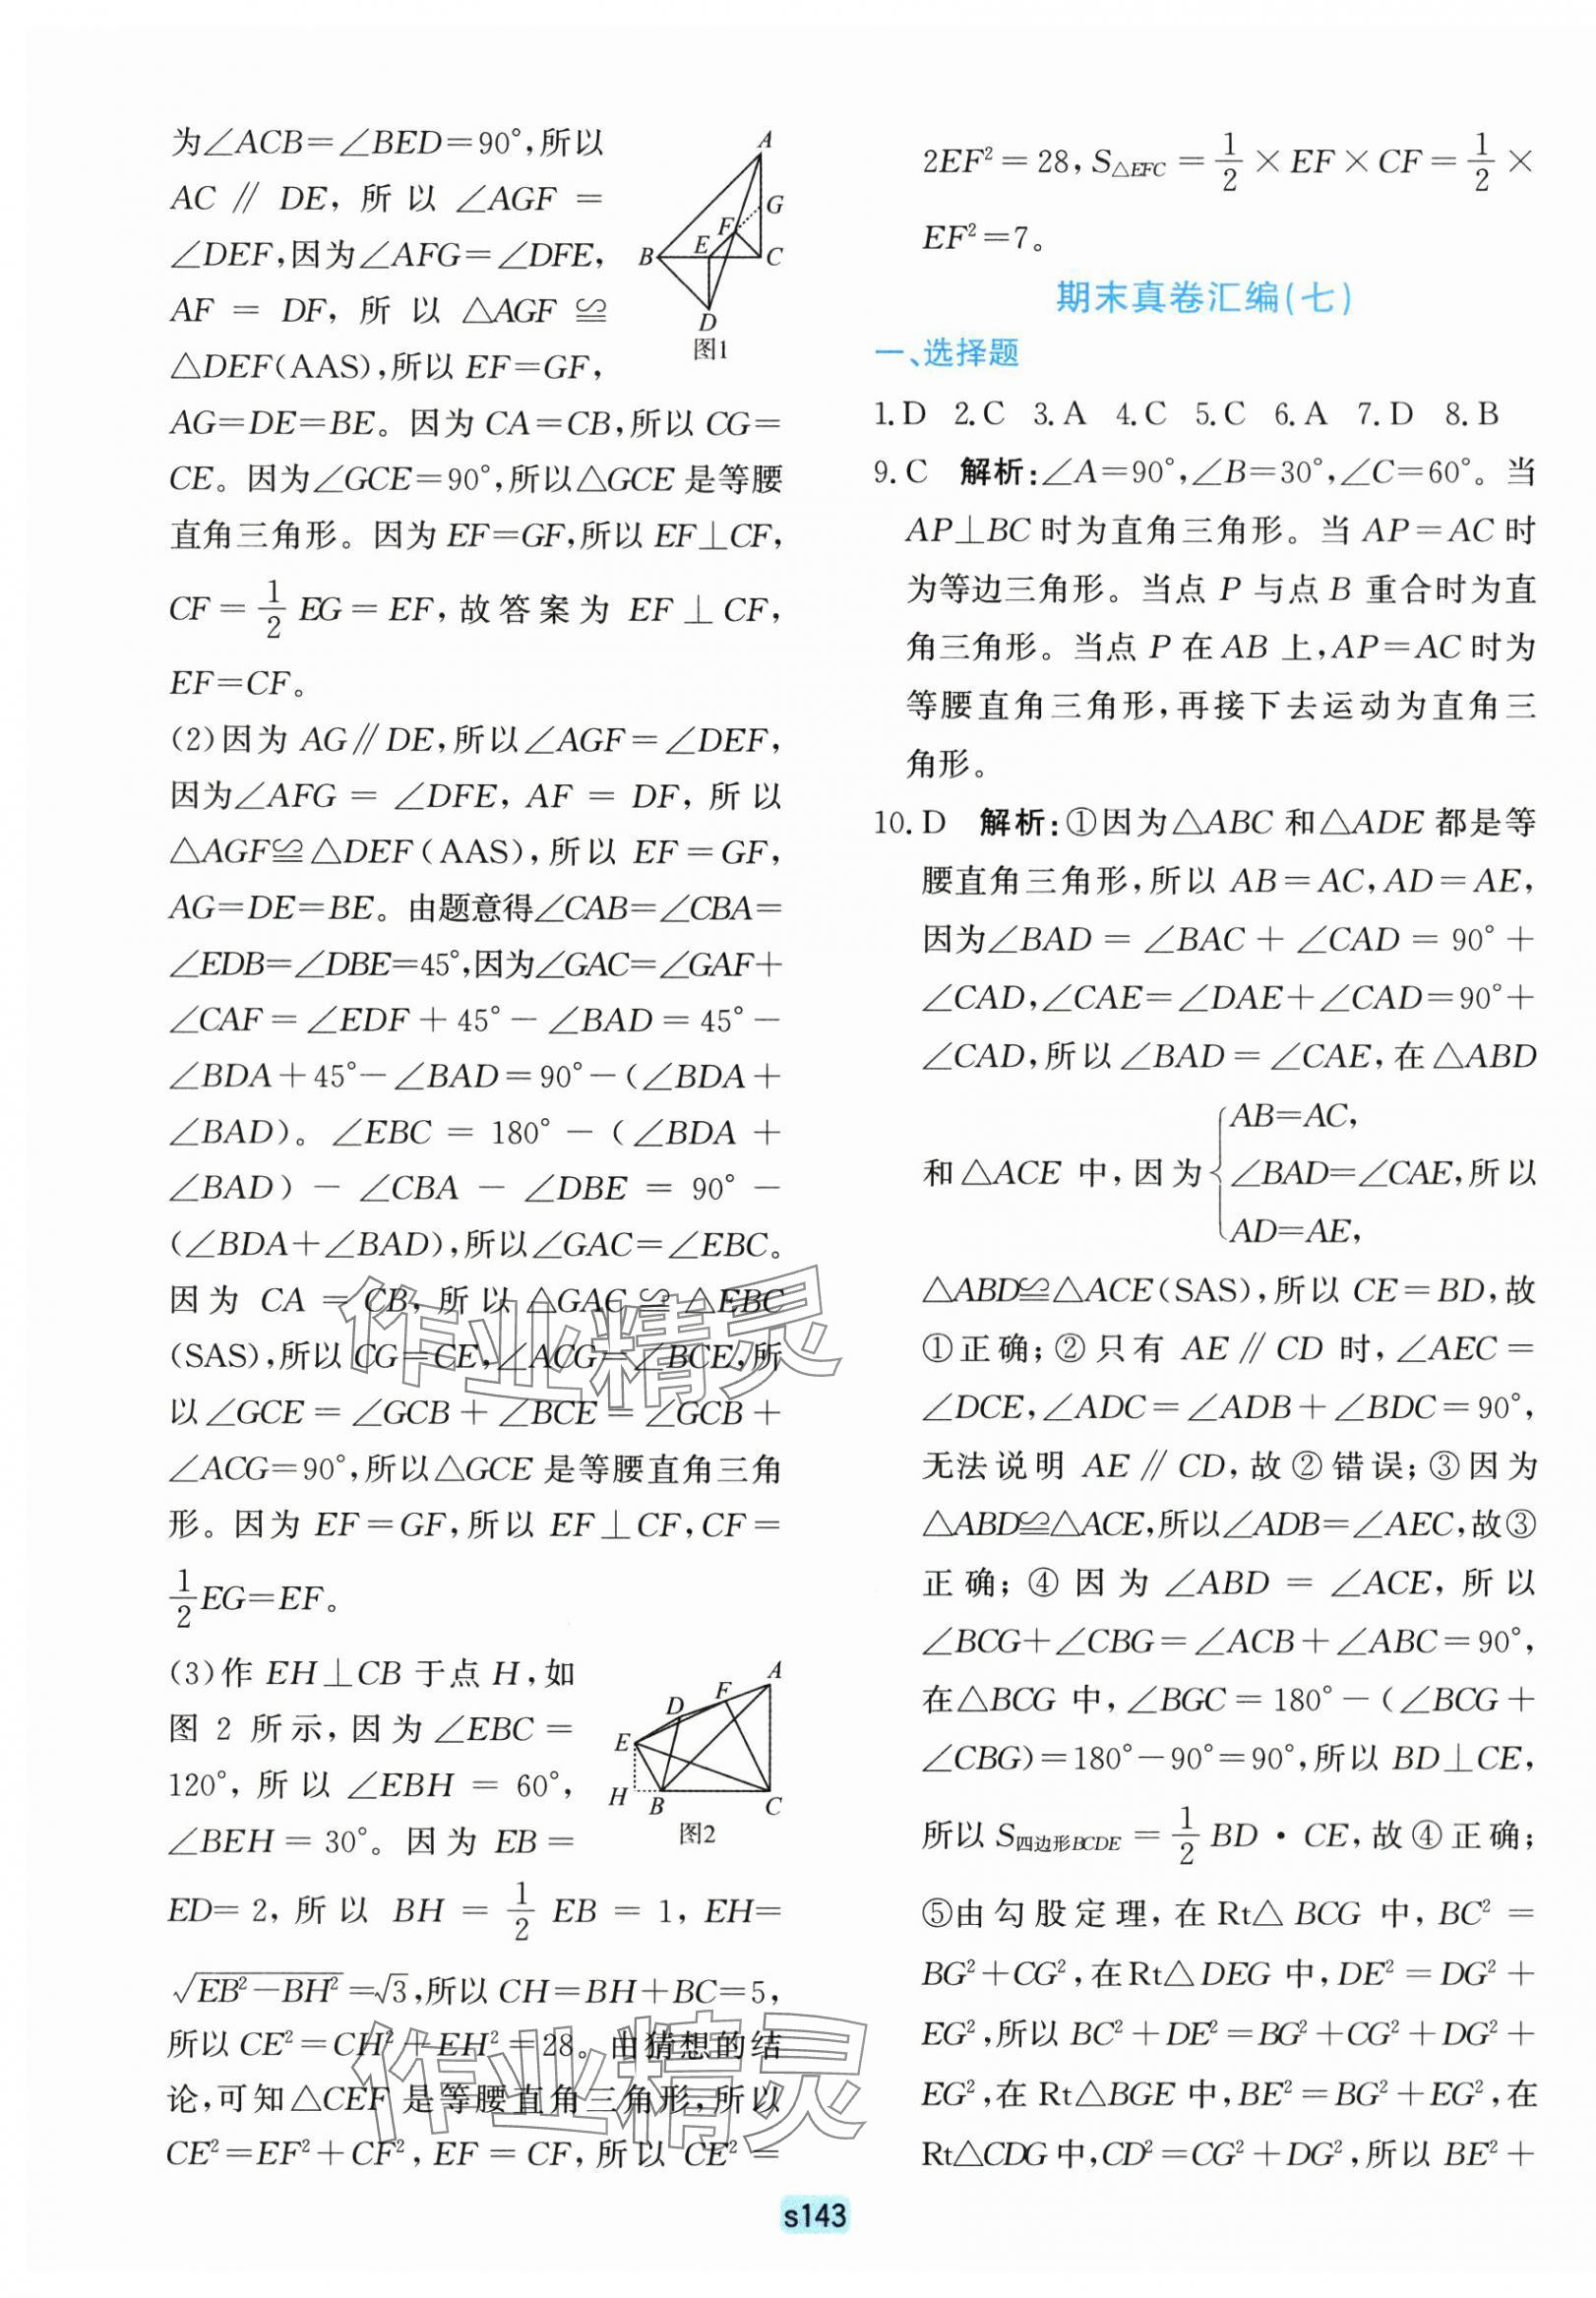 为∠ACB=∠BED=90°,所以
AC∥DE,所以∠AGF=
∠DEF,因为∠AFG=∠DFE,
AF=DF,所以△AGF≌
△DEF(AAS),所以EF=GF,
A
G
F
B
E
C
D
图1
AG=DE=BE。因为CA=CB,所以CG=
CE。因为∠GCE=90°,所以△GCE是等腰
直角三角形。因为EF=GF,所以EF⊥CF,
CF=1/2EG=EF,故答案为EF⊥CF,
EF=CF。
(2)因为AG∥DE,所以∠AGF=∠DEF,
因为∠AFG=∠DFE,AF=DF,所以
△AGF≌△DEF(AAS),所以EF=GF,
AG=DE=BE。由题意得∠CAB=∠CBA=
∠EDB=∠DBE=45°,因为∠GAC=∠GAF+
∠CAF=∠EDF+45°-∠BAD=45°-
∠BDA+45°-∠BAD=90°-(∠BDA+
∠BAD)。∠EBC=180°-(∠BDA+
∠BAD)-∠CBA-∠DBE=90°-
(∠BDA+∠BAD),所以∠GAC=∠EBC。
因为CA=CB,所以△GAC≌△EBC
(SAS),所以CG=CE,∠ACG=∠BCE,所
以∠GCE=∠GCB+∠BCE=∠GCB+
∠ACG=90°,所以△GCE是等腰直角三角
形。因为EF=GF,所以EF⊥CF,CF=
1/2EG=EF。
(3)作EH⊥CB于点H,如
图2所示,因为∠EBC=
120°,所以∠EBH=60°,
∠BEH=30°。因为EB=
A
F
D
E
H
B
C
图2
ED=2,所以BH=1/2EB=1,EH=
√(EB²-BH²)=√3,所以CH=BH+BC=5,
所以CE²=CH²+EH²=28。由猜想的结
论,可知△CEF是等腰直角三角形,所以
CE²=EF²+CF²,EF=CF,所以CE²=
2EF²=28,S△EFC=1/2×EF×CF=1/2×
EF²=7。
期末真卷汇编(七)
一、选择题
1.D 2.C 3.A 4.C 5.C 6.A 7.D 8.B
9.C 解析:∠A=90°,∠B=30°,∠C=60°。当
AP⊥BC时为直角三角形。当AP=AC时
为等边三角形。当点P与点B重合时为直
角三角形。当点P在AB上,AP=AC时为
等腰直角三角形,再接下去运动为直角三
角形。
10.D 解析:①因为△ABC和△ADE都是等
腰直角三角形,所以AB=AC,AD=AE,
因为∠BAD=∠BAC+∠CAD=90°+
∠CAD,∠CAE=∠DAE+∠CAD=90°+
∠CAD,所以∠BAD=∠CAE,在△ABD
AB=AC,
和△ACE中,因为{∠BAD=∠CAE,所以
AD=AE,
△ABD≌△ACE(SAS),所以CE=BD,故
①正确;②只有AE∥CD时,∠AEC=
∠DCE,∠ADC=∠ADB+∠BDC=90°,
无法说明AE∥CD,故②错误;③因为
△ABD≌△ACE,所以∠ADB=∠AEC,故③
正确;④因为∠ABD=∠ACE,所以
∠BCG+∠CBG=∠ACB+∠ABC=90°,
在△BCG中,∠BGC=180°-(∠BCG+
∠CBG)=180°-90°=90°,所以BD⊥CE,
所以S四边形BCDE=1/2BD·CE,故④正确;
⑤由勾股定理,在Rt△BCG中,BC²=
BG²+CG²,在Rt△DEG中,DE²=DG²+
EG²,所以BC²+DE²=BG²+CG²+DG²+
EG²,在Rt△BGE中,BE²=BG²+EG²,在
Rt△CDG中,CD²=CG²+DG²,所以BE²+
作业精灵
作业精灵
s143